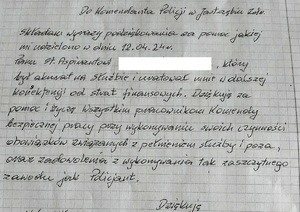 Do Komendanta Policji w Jastrzębiu Zdr.
Składam wyrazy podziękowania za pomoc jakiej
mi udzielono w dniu 12.04.24r.
Panu st. Aspirantowi , który
był akurat na służbie i uratował mnie w dalszej
od strat finansowych. Dziękuję za
pomoc i życzę wszystkim pracownikom Komendy
bezpiecznej pracy przy wykonywaniu swoich czynności
obowiązków związanych z pełnieniem służby i poza,
oraz zadowolenia z wykonywania tak zaszczytnego
zawodu jak Policjant.
Dziękuję